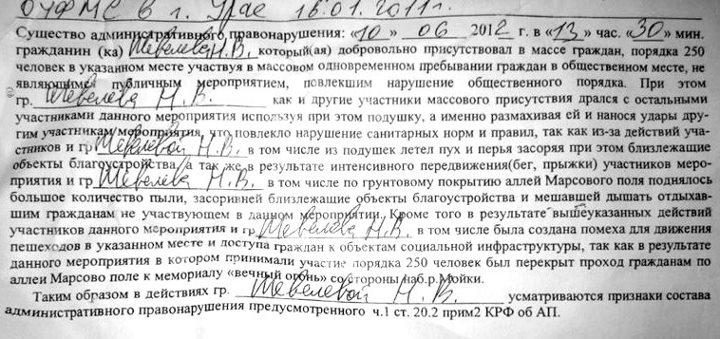 ОУФМС в г. 18.01.2011г.
Существо административного правонарушения: «10» 06 2012 г. в «13» час. «30» мин.
гражданин (ка) Шевелева Н.В. который(ая) добровольно присутствовал в массе граждан, порядка 250
человек в указанном месте участвуя в массовом одновременном пребывании граждан в общественном месте, не
являющимся публичным мероприятием, повлекшим нарушение общественного порядка. При этом
гр. Шевелева Н.В. как и другие участники массового присутствия дрался с остальными
участниками данного мероприятия используя при этом подушку, а именно размахивая ей и нанося удары дру-
гим участникам мероприятия, что повлекло нарушение санитарных норм и правил, так как из-за действий уча-
стников и гр. Шевелевой Н.В. в том числе из подушек летел пух и перья засоряя при этом близлежащие
объекты благоустройства, а так же в результате интенсивного передвижения(бег, прыжки) участников меро-
приятия и гр. Шевелева Н.В. в том числе по грунтовому покрытию аллей Марсового поля поднялось
большое количество пыли, засорившей близлежащие объекты благоустройства и мешавшей дышать отдыхав-
шим гражданам не участвующем в данном мероприятии. Кроме того в результате вышеуказанных действий
участников данного мероприятия и гр. Шевелева Н.В. в том числе была создана помеха для движения
пешеходов в указанном месте и доступа граждан к объектам социальной инфраструктуры, так как в результате
данного мероприятия в котором принимали участие порядка 250 человек был перекрыт проход гражданам по
аллеи Марсово поле к мемориалу «вечный огонь» со стороны наб.р.Мойки.
Таким образом в действиях гр. Шевелевой Н.В. усматриваются признаки состава
административного правонарушения предусмотренного ч.1 ст. 20.2 прим2 КРФ об АП.